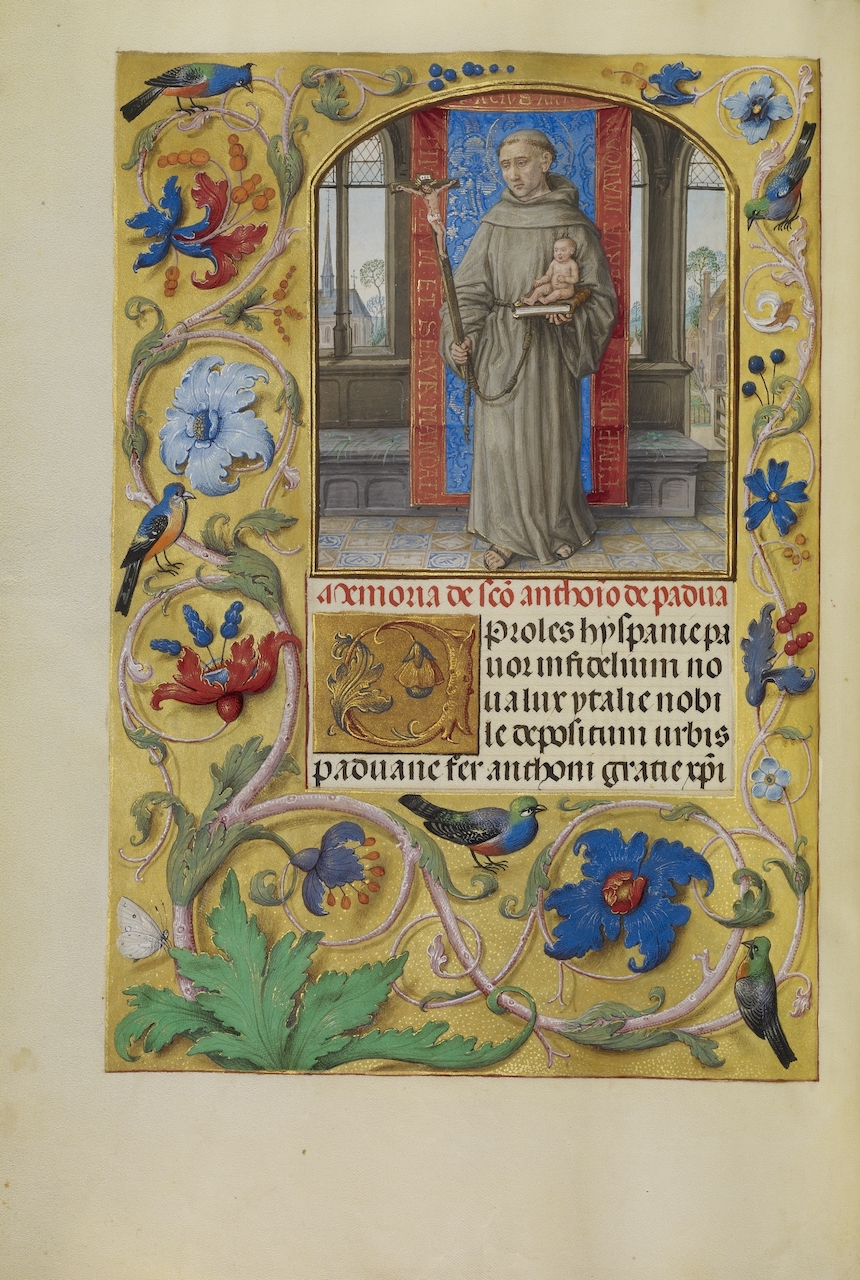 ET SERVE
TIME DEVM
Memoria de scō anthoīo de padua
O Proles hyspanie pa
uor infidelium no
ua lux ytalie nobi
le depositum urbis
paduane fer anthoni gratie xp̄i